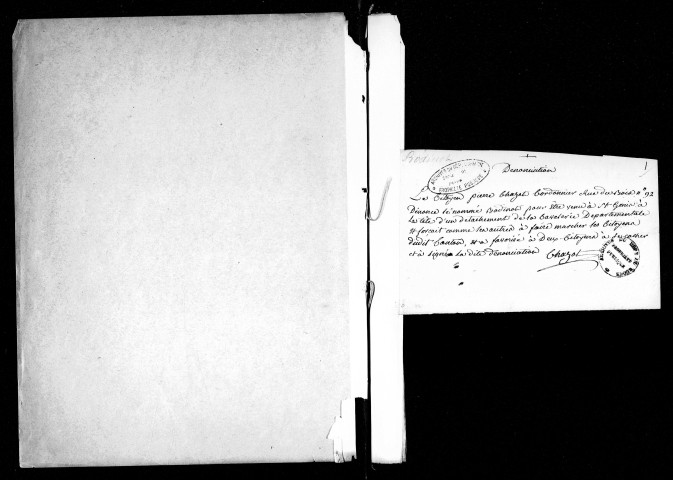 Denonciation
Le Citoyen pierre Chazot Cordonnier Rue du Bois n° 92
Dénonce le nommé Bodinot pour être venu à St Genis à
la tête d'un detachement de la Cavalerie Departementale
et forçait comme les autres à faire marcher les Citoyens
dudit Canton, et a favorisé à Deux Citoyens à se cacher
et à signé la dite dénonciation Chazot